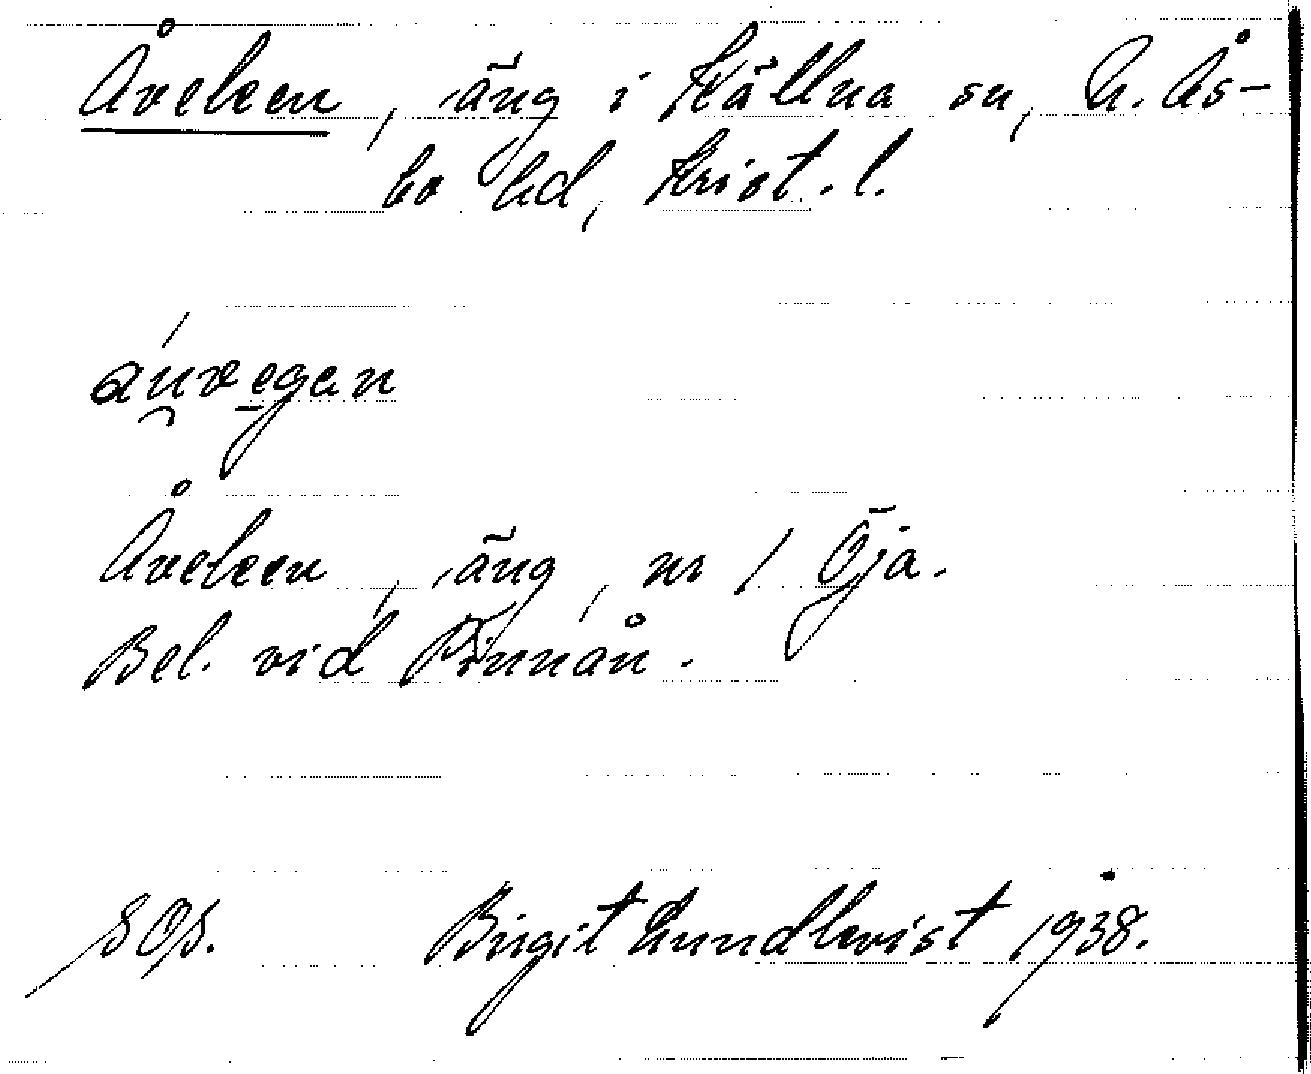 Åveken, äng i Källna sn, N. Ås-
bo hd, Krist. l.
áu̯vegan
Åveken, äng, nr 1 Öja.
Bel. vid Pinnån.
SOS. Birgit Lundkvist 1938.